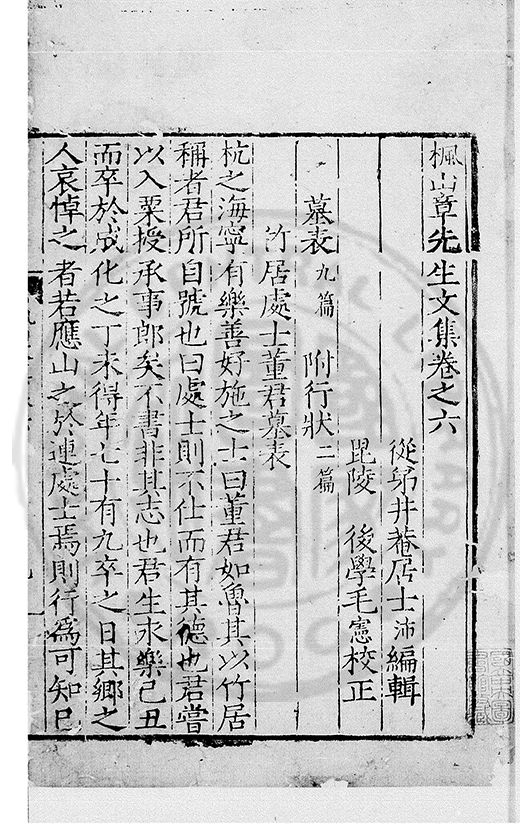 楓山章先生文集卷之六
從弟井菴居士沛編輯
毘陵 後學毛憲校正
墓表九篇 附行狀二篇
竹居處士董君墓表
杭之海寧有樂善好施之士曰董君如魯其以竹居
稱者君所自號也曰處士則不仕而有其德也君嘗
以入粟授承事郎矣不書非其志也君生永樂己丑
而卒於成化之丁未得年七十有九卒之日其鄉之
人哀悼之者若應山之於連處士焉則行爲可知已